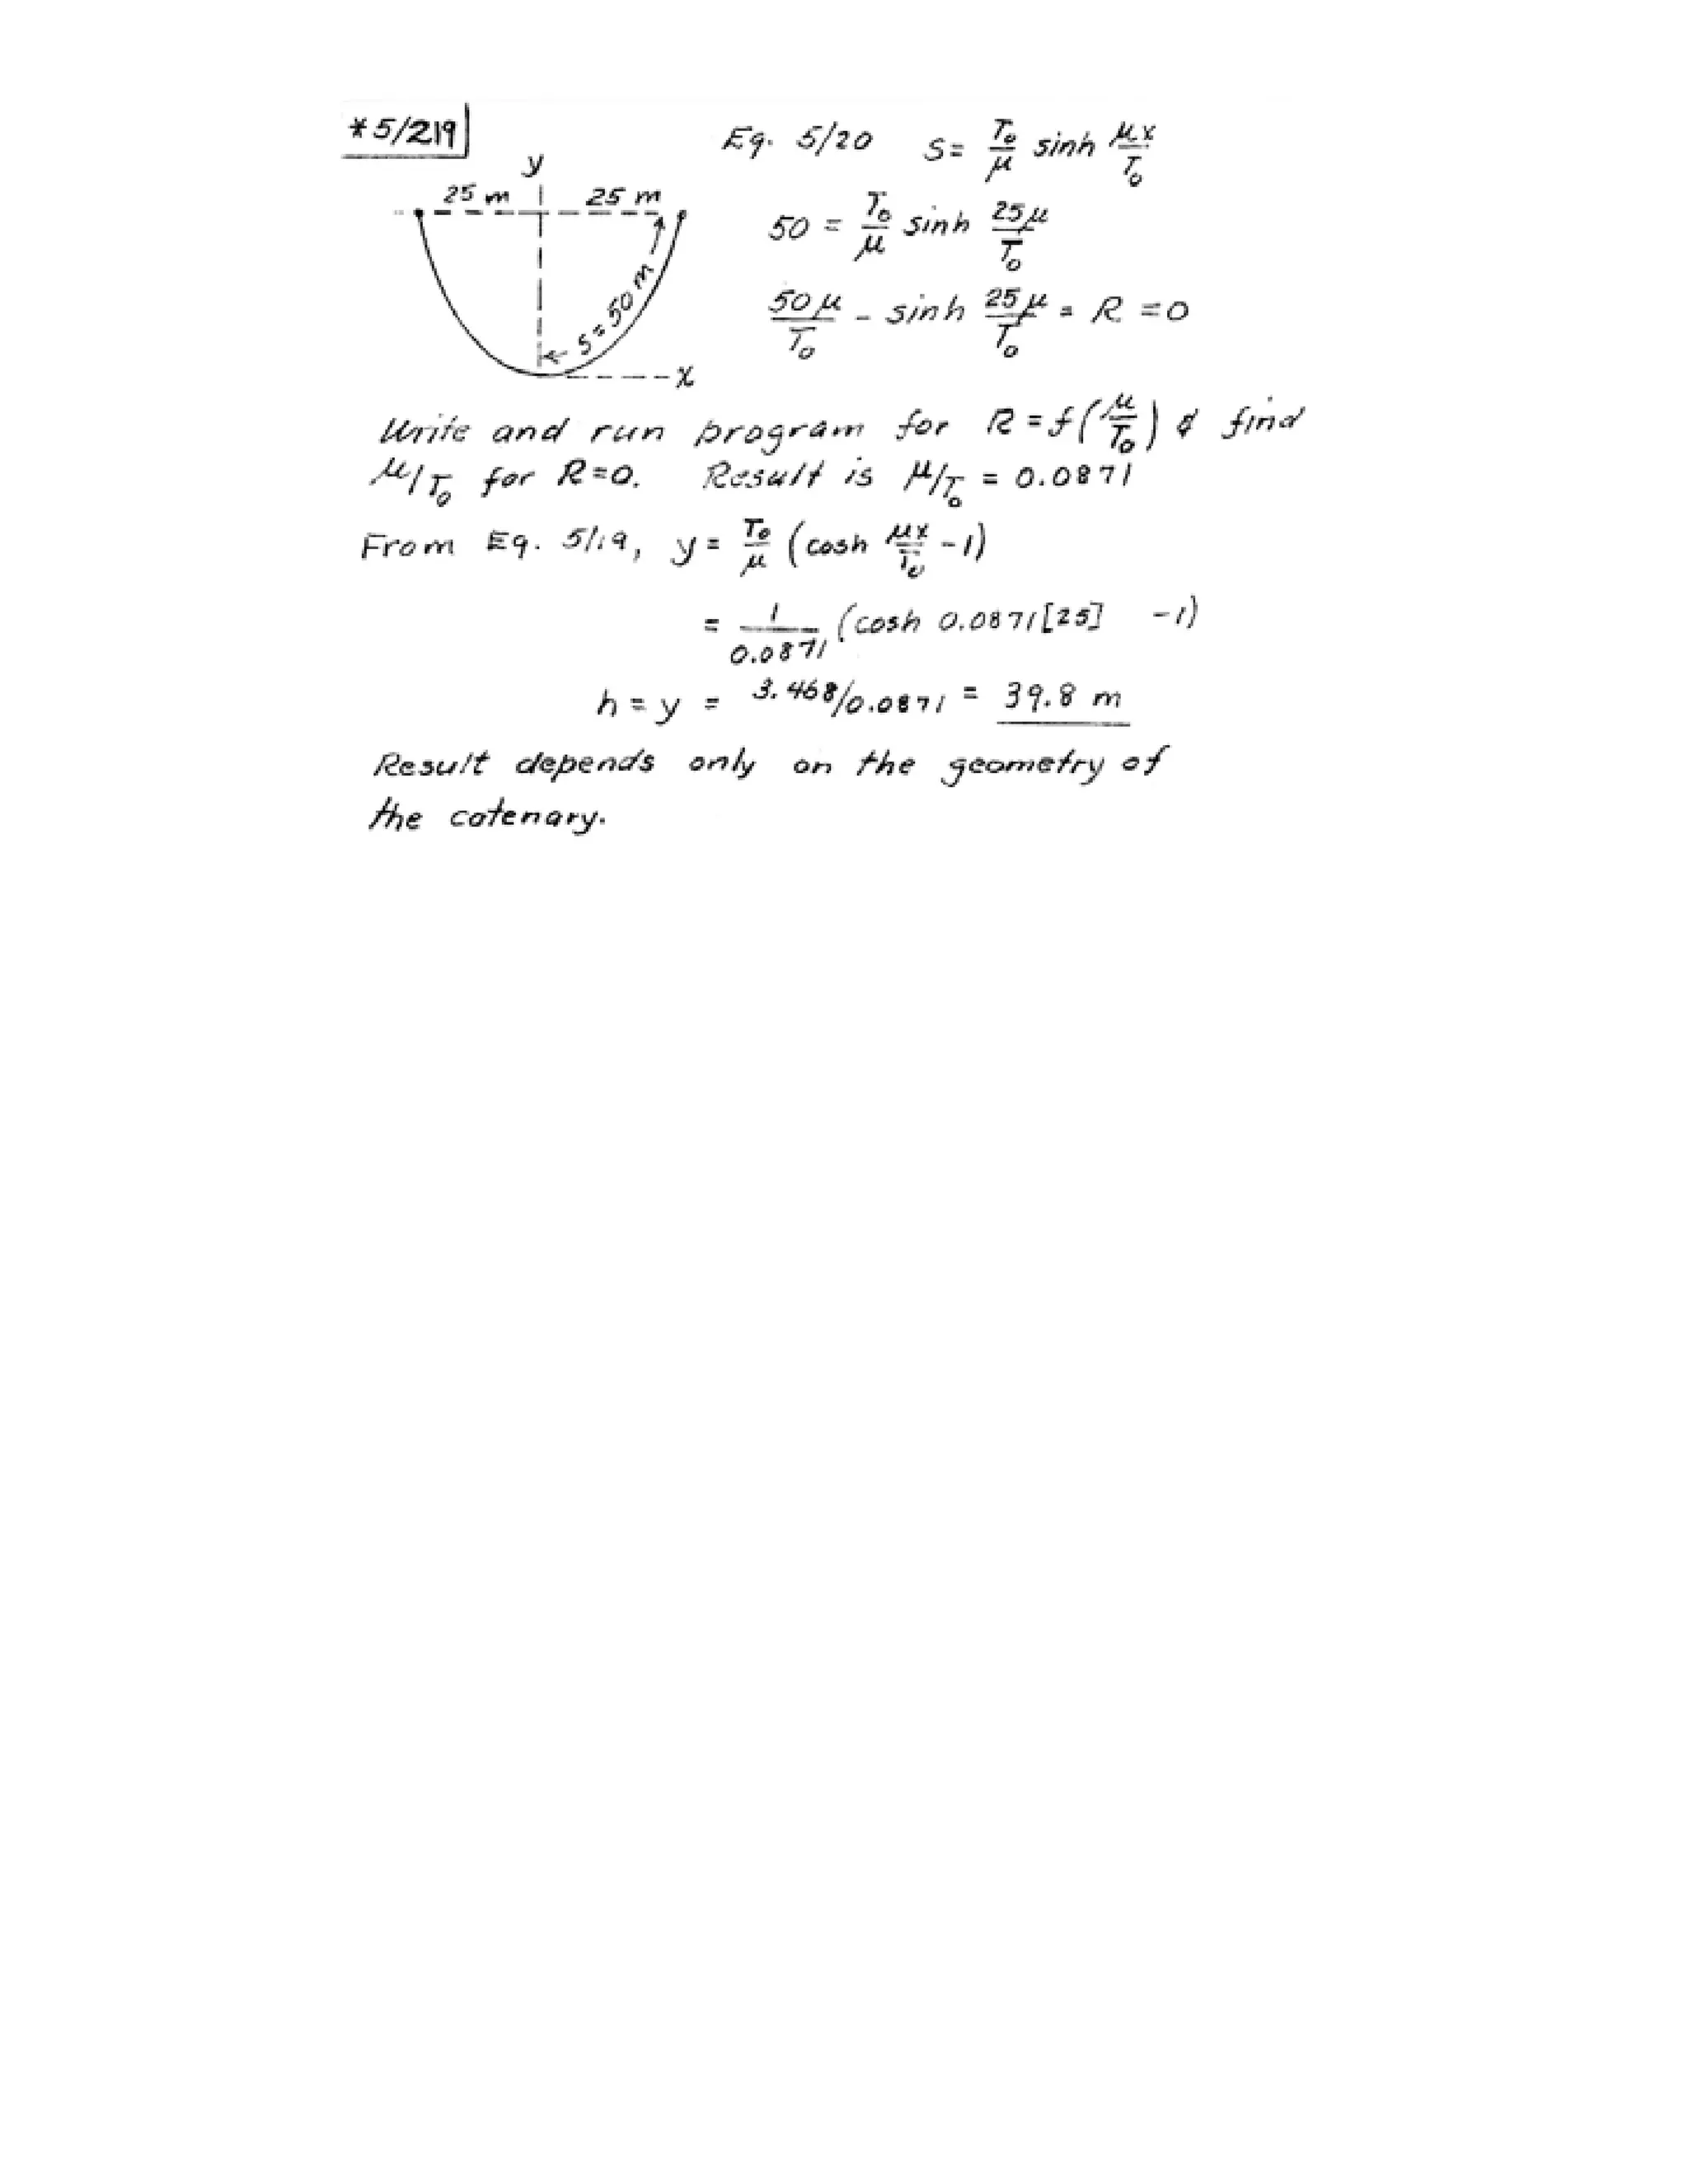 *5/219
y
25 m 25 m
s = 50 m
x
Eq. 5/20 s = T₀/μ sinh μx/T₀
50 = T₀/μ sinh 25μ/T₀
50μ/T₀ - sinh 25μ/T₀ = R = 0
Write and run program for R = f(μ/T₀) & find
μ/T₀ for R=0. Result is μ/T₀ = 0.0871
From Eq. 5/19, y = T₀/μ (cosh μx/T₀ - 1)
= 1/0.0871 (cosh 0.0871[25] - 1)
h = y = 3.468/0.0871 = 39.8 m
Result depends only on the geometry of
the catenary.